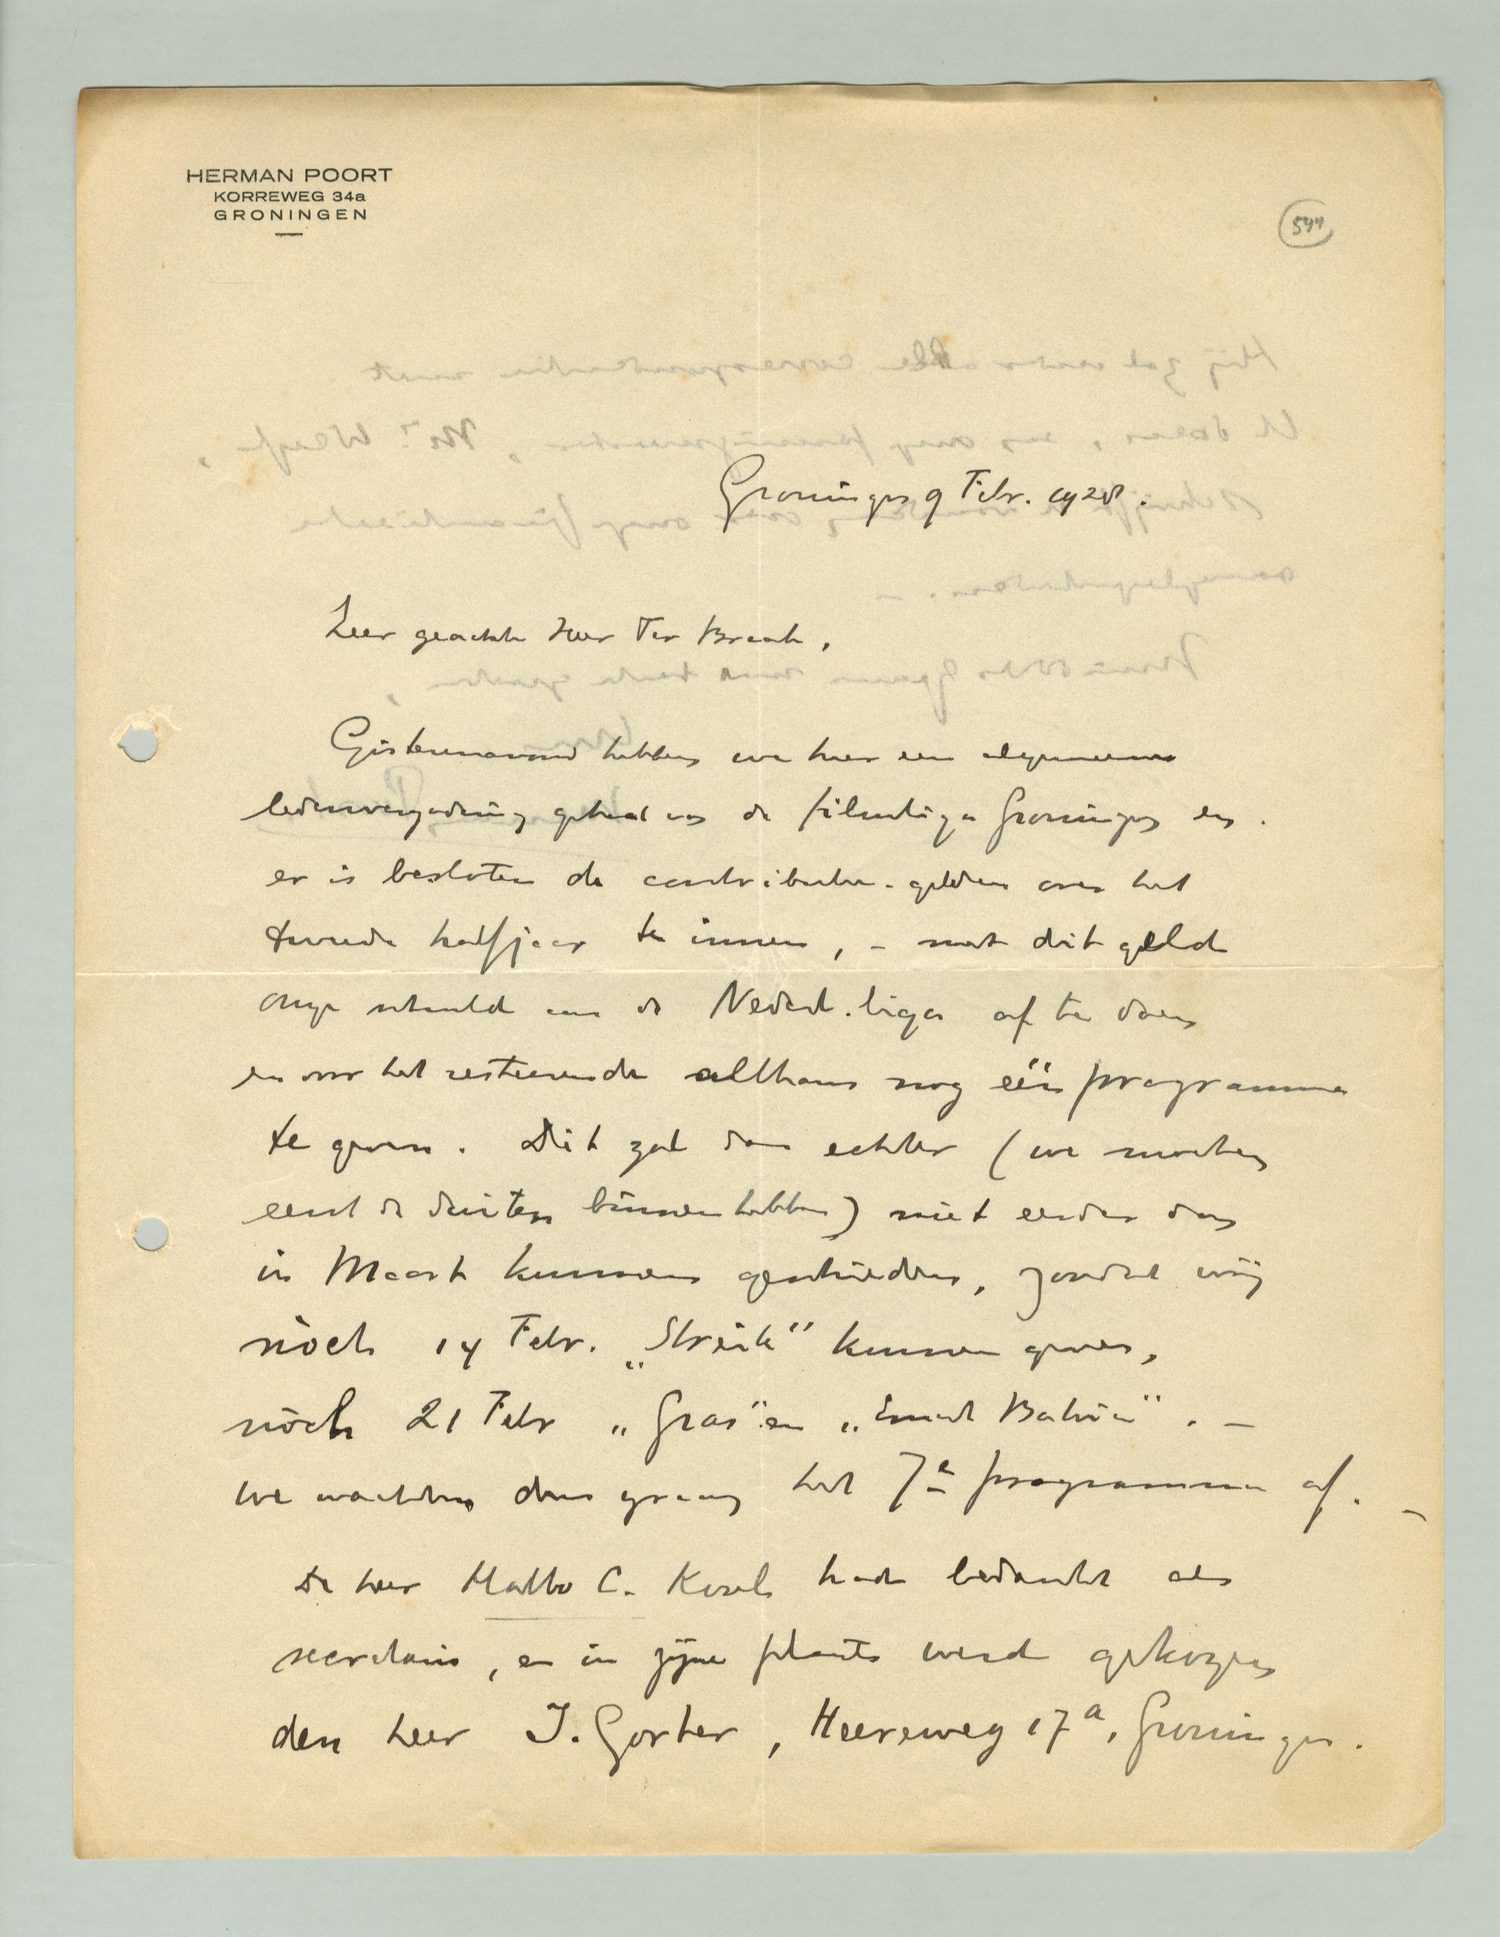 HERMAN POORT
KORREWEG 34a
GRONINGEN
Groningen 9 Febr. 1928.
Zeer geachte Heer Ter Braak,
Gisterenavond hebben we hier een algemeene
ledenvergadering gehad van de filmliga Groningen en
er is besloten de contributie-gelden over het
tweede halfjaar te innen, – met dit geld
onze schuld aan de Nederl. liga af te doen
en voor het resteerende althans nog één programma
te geven. Dit zal dan echter (we moeten
eerst de duiten binnen hebben) niet eerder dan
in Maart kunnen geschieden, zoodat wij
nòch 14 Febr. „Streik" kunnen geven,
nòch 21 Febr „Gras" en „Emak Bakia". –
We wachten dus graag het 7e programma af. –
De heer Hatto C. Kool had bedankt als
secretaris, en in zijne plaats werd gekozen
den heer J. Gorter, Heereweg 17a, Groningen.